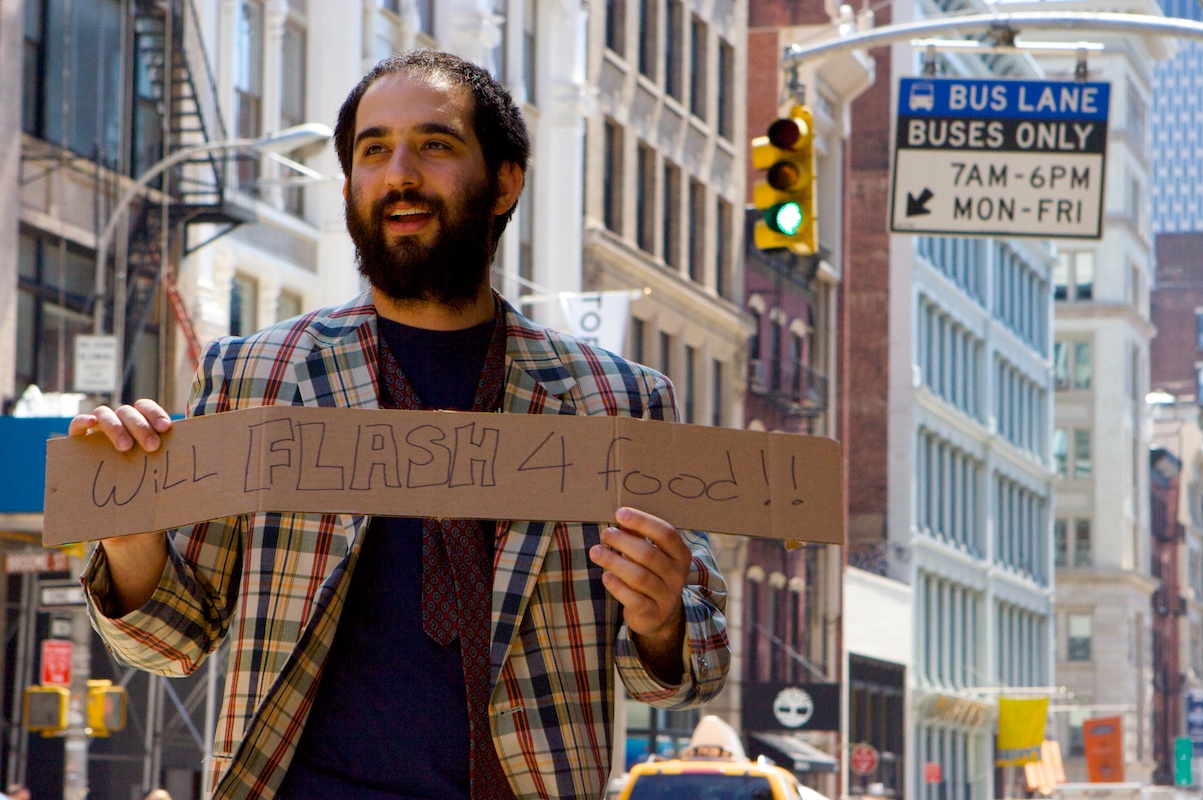 BUS LANE
BUSES ONLY
7AM-6PM
MON-FRI
WiLL FLASH 4 food!!